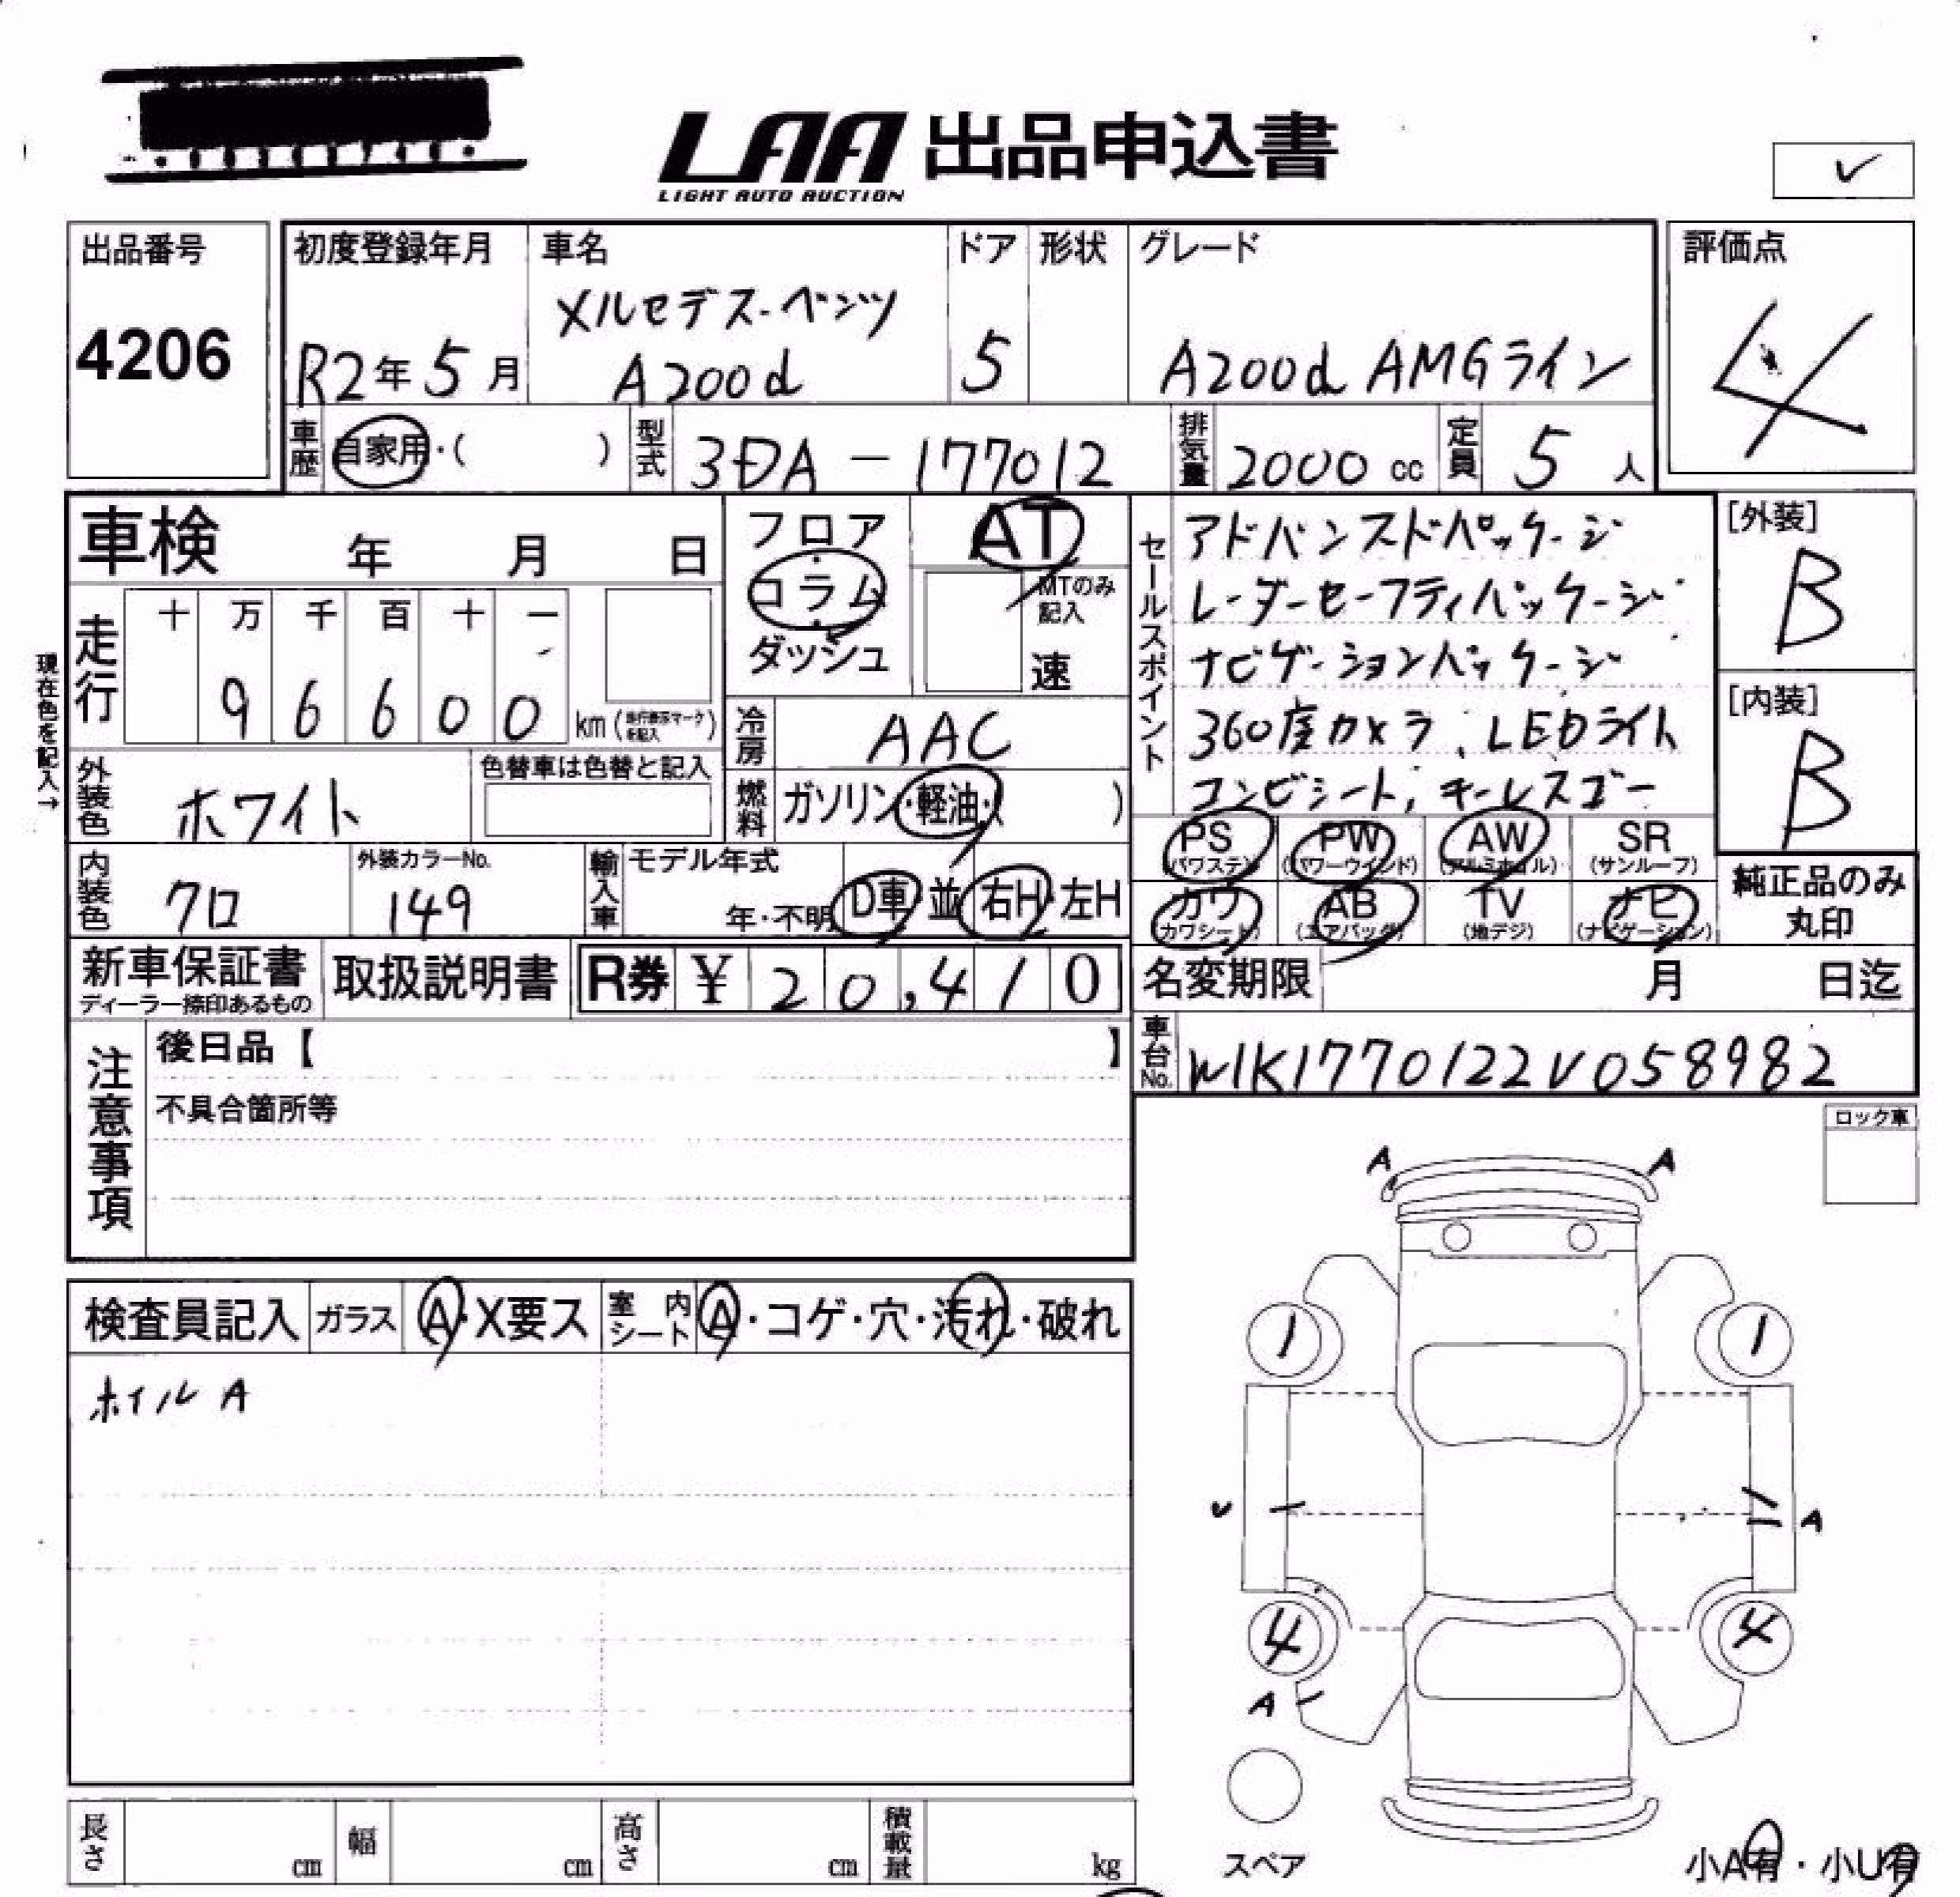 LAA 出品申込書
LIGHT AUTO AUCTION
✓
出品番号
4206
初度登録年月
R2年5月
車名
メルセデス-ベンツ
A200d
ドア
5
形状
グレード
A200d AMGライン
評価点
4
車歴 自家用・( )
型式 3DA-177012
排気量 2000 cc
定員 5 人
車検 年 月 日
現在色を記入→
走行
十 万 千 百 十 一
9 6 6 0 0 km
フロア
・
コラム
・
ダッシュ
AT
MTのみ
記入
速
冷房 AAC
燃料 ガソリン・軽油・( )
セールスポイント
アドバンスドパッケージ
レーダーセーフティパッケージ
ナビゲーションパッケージ
360度カメラ、LEDライト
コンビシート、キーレスゴー
[外装]
B
[内装]
B
外装色 ホワイト
色替車は色替と記入
内装色 クロ
外装カラーNo.
149
輸入車
モデル年式
年・不明
D車・並
右H・左H
PS
(パワステ)
PW
(パワーウインド)
AW
(アルミホイル)
SR
(サンルーフ)
カワ
(カワシート)
AB
(エアバッグ)
TV
(地デジ)
ナビ
(ナビゲーション)
純正品のみ
丸印
新車保証書
ディーラー捺印あるもの
取扱説明書
R券 ¥ 20,410
名変期限 月 日迄
車台No. W1K1770122V058982
注意事項
後日品【 】
不具合箇所等
ロック車
検査員記入
ガラス A・X要ス
室内シート A・コゲ・穴・汚れ・破れ
ホイル A
A A
1 1
✓ A
4 4
A
スペア
小A有・小U有
長さ cm
幅 cm
高さ cm
積載量 kg